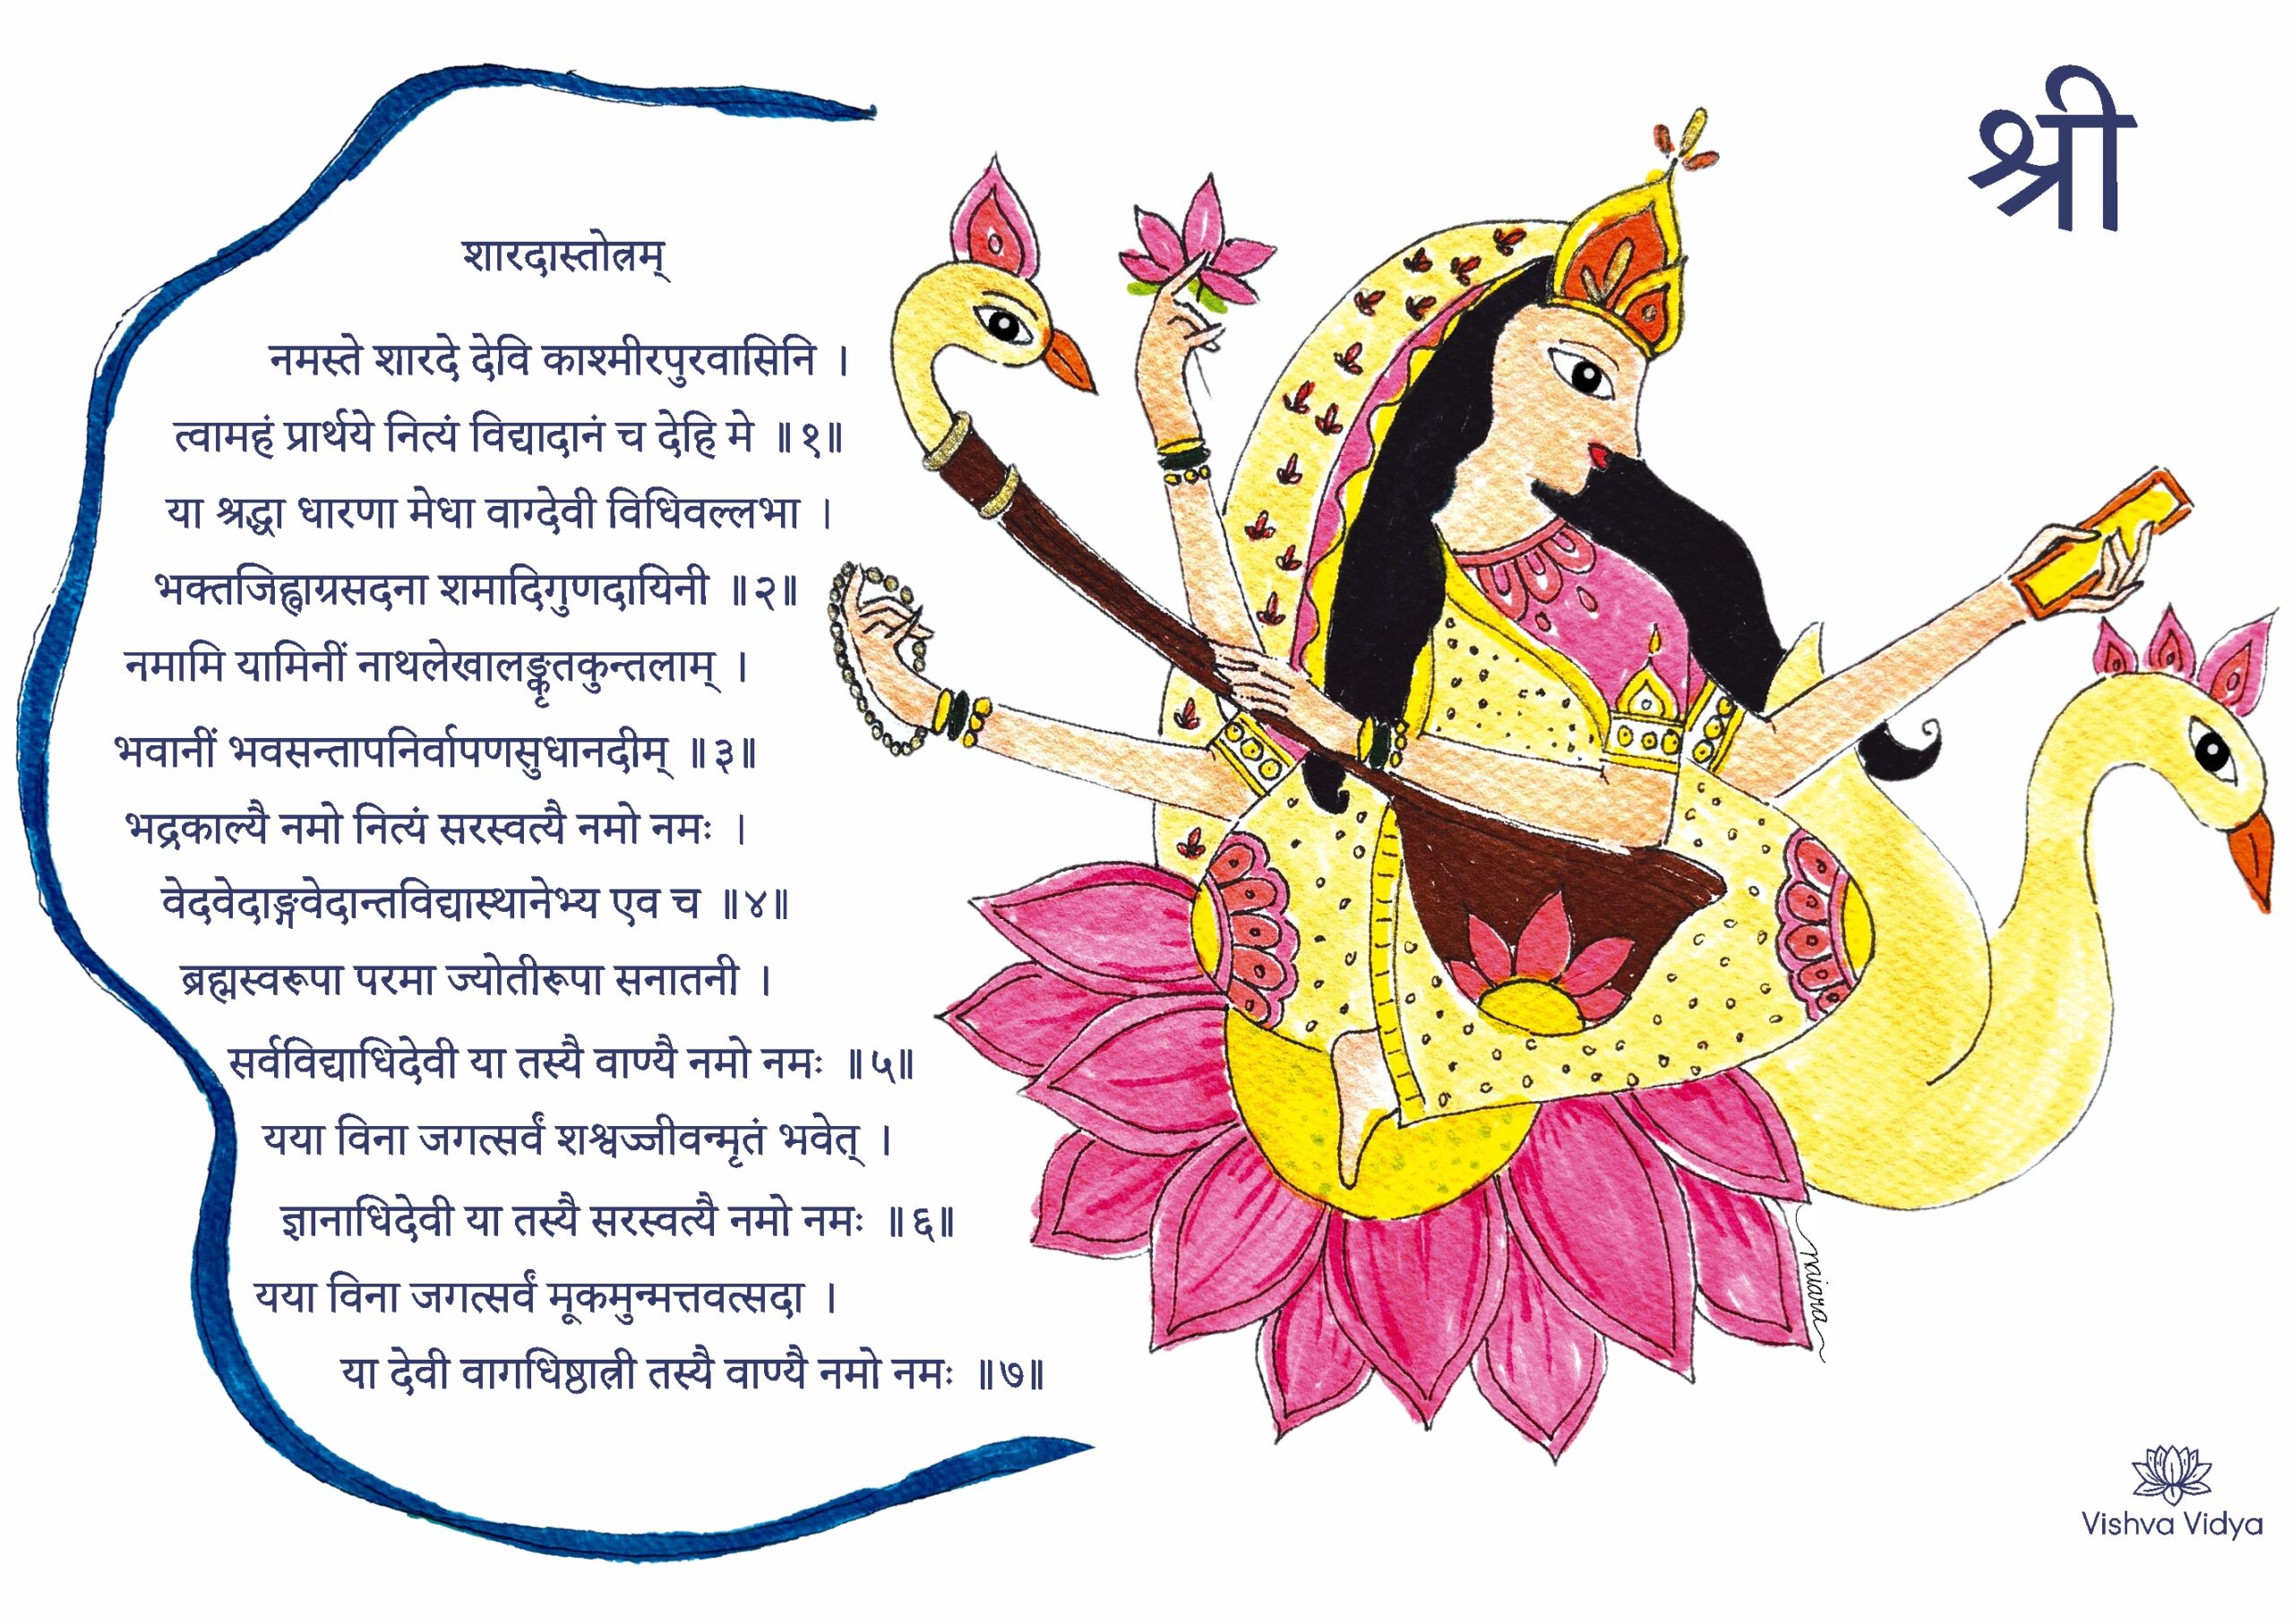 श्री
शारदास्तोत्रम्
नमस्ते शारदे देवि काश्मीरपुरवासिनि ।
त्वामहं प्रार्थये नित्यं विद्यादानं च देहि मे ॥१॥
या श्रद्धा धारणा मेधा वाग्देवी विधिवल्लभा ।
भक्तजिह्वाग्रसदना शमादिगुणदायिनी ॥२॥
नमामि यामिनीं नाथलेखालङ्कृतकुन्तलाम् ।
भवानीं भवसन्तापनिर्वापणसुधानदीम् ॥३॥
भद्रकाल्यै नमो नित्यं सरस्वत्यै नमो नमः ।
वेदवेदाङ्गवेदान्तविद्यास्थानेभ्य एव च ॥४॥
ब्रह्मस्वरूपा परमा ज्योतीरूपा सनातनी ।
सर्वविद्याधिदेवी या तस्यै वाण्यै नमो नमः ॥५॥
यया विना जगत्सर्वं शश्वज्जीवन्मृतं भवेत् ।
ज्ञानाधिदेवी या तस्यै सरस्वत्यै नमो नमः ॥६॥
यया विना जगत्सर्वं मूकमुन्मत्तवत्सदा ।
या देवी वागधिष्ठात्री तस्यै वाण्यै नमो नमः ॥७॥
naiara
Vishva Vidya